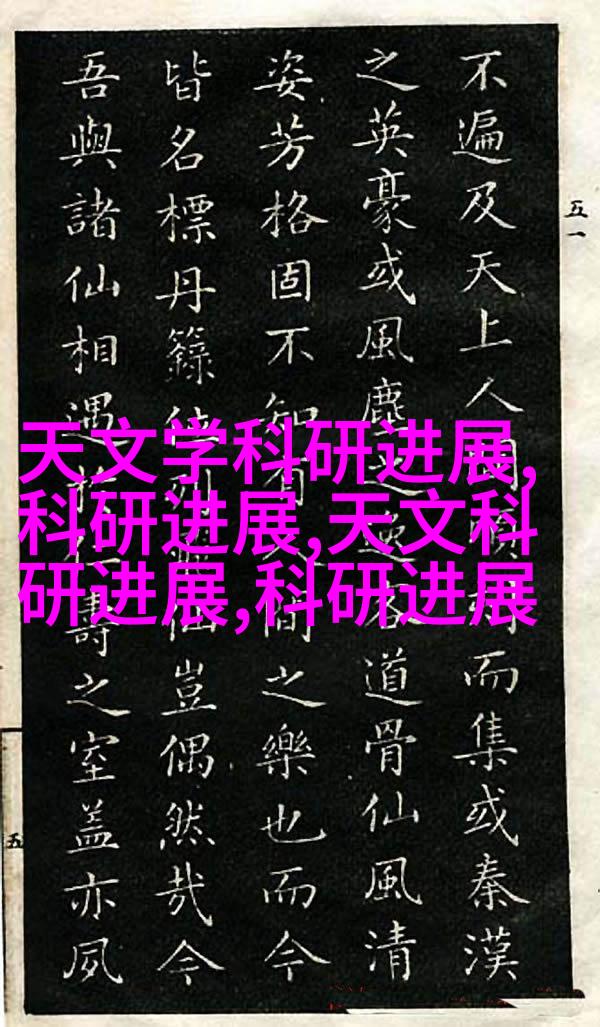 天文学科研进展,
科研进展,天文科
研进展,科研进展
五一
不遍及天上人而集或秦漢
之英豪或風塵道骨仙風清
姿芳格固不知有間之樂也而今
皆名標丹籙位仙豈偶然哉今
吾與諸仙相遇壽之室盖亦夙
五